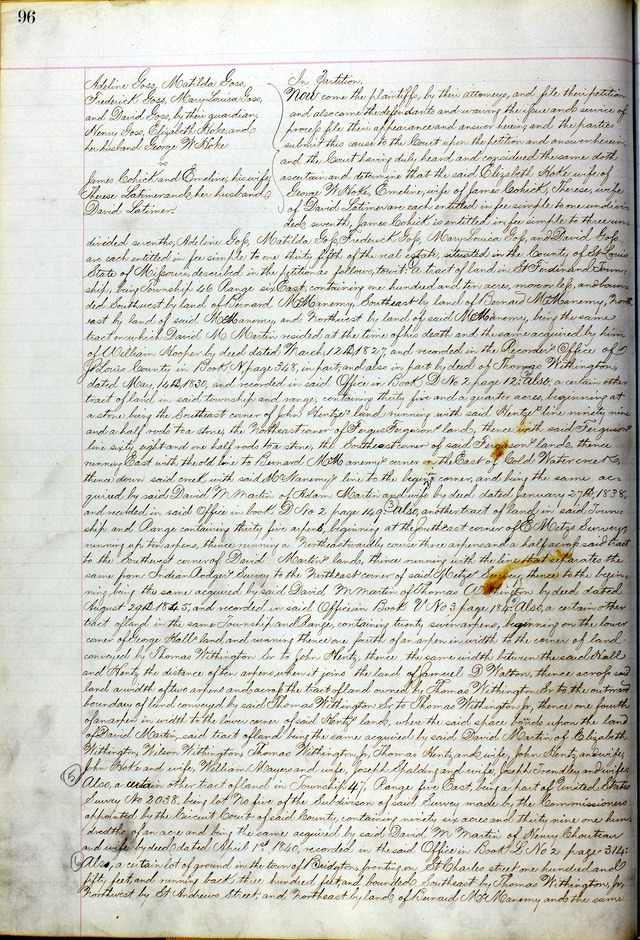 96
Adeline Goss, Matilda Goss,
Frederick Goss, Mary Louisa Goss,
and David Goss, by their guardian,
Henry Goss, Elizabeth Hoke, and
her husband George W Hoke
vs
James Cohick and Emeline, his wife,
Therese Latimer and her husband,
David Latimer.
In Partition.
Now come the plaintiffs, by their attorneys, and file their petition
and also come the defendants and waiving the issue and service of
process file their appearance and answer herein, and the parties
submit this cause to the Court upon the petition and answer herein,
and the Court having duly heard and considered the same doth
ascertain and determine that the said Elizabeth Hoke wife of
George W Hoke, Emeline, wife of James Cohick, Therese, wife
of David Latimer are each entitled in fee simple to one undivi-
ded seventh, James Cohick is entitled in fee simple to three un-
divided sevenths, Adeline Goss, Matilda Goss, Frederick Goss, Mary Louisa Goss, and David Goss
are each entitled in fee simple to one thirty fifth of the real estate, situated in the County of St Louis
State of Missouri described in the petition as follows, to wit: a tract of land in St Ferdinand Town-
ship, being Township 46 Range six East, containing one hundred and ten acres, more or less, and boun-
ded Southwest by land of Bernard McManemy, Southeast by land of Bernard McManemy, North
east by land of said McManemy, and Northwest by land of said McManemy, being the same
tract on which David M Martin resided at the time of his death and the same acquired by him
of William Hooper by deed dated March, 12th 1827, and recorded in the Recorder's Office of
St Louis County in Book N page 348, in part, and also in part by deed of Thomas Withington,
dated May, 14th 1830, and recorded in said Office in Book D No 2, page 12; Also, a certain other
tract of land in said township and range, containing thirty five and a quarter acres, beginning at
a stone being the Southeast corner of John Hentz's land running with said Hentz's line ninety nine
and a half rods to a stone, the Northeast corner of Fergus Ferguson's land, thence with said Ferguson's
line sixty eight and one half rods to a stone, the Southeast corner of said Ferguson's lands, thence
running East with the old line to Bernard McManemy's corner in the East of Cold Water creek
thence down said creek with said McManemy's line to the beginning corner, and being the same ac-
quired by said David M Martin of Adam Martin and wife by deed dated January 27th, 1838,
and recorded in said Office in book D No 2 page 149; Also, another tract of land in said Town-
ship and Range containing thirty five arpens, beginning at the Northeast corner of E Metz's Survey
running six ten arpens, thence running a Northeastwardly course three arpens and a half across said tract
to the Southwest corner of David Martin's lands, thence running with the line that separates the
same from Indian Rodger's Survey to the Northeast corner of said Metz's Survey, thence to the begin-
ning, being the same acquired by said David M Martin of Thomas Withington by deed dated
August 29th 1845, and recorded in said Office in Book V No 3 page 185. Also, a certain other
tract of land in the same Township and Range, containing twenty seven arpens, beginning on the lower
corner of George Hall's land and running thence one fourth of an arpen in width to the corner of land
conveyed by Thomas Withington Sr to John Hentz, thence the same width between the said Hall
and Hentz the distance of ten arpens, when it joins the land of Samuel D Walton, thence across said
land a width of two arpens and across the tract of land owned by Thomas Withington Sr to the outward
boundary of land conveyed by said Thomas Withington Sr to Thomas Withington Jr, thence one fourth
of an arpen in width to the lower corner of said Hentz's land, where the said space bounds upon the land
of David Martin, said tract of land being the same acquired by said David Martin of Elizabeth
Withington, Wilson Withington, Thomas Withington Jr, Thomas Hentz and wife, John Hentz and wife,
John Hoke and wife, William Mayers and wife, Joseph Spalding and wife, Joseph Trendley and wife;
5
Also, a certain other tract of land in Township 47, Range five East, being a part of United States
Survey No 2038, being lot No five of the Subdivison of said Survey made by the Commissioners
appointed by the Circuit Court of said County, containing ninety six acres and thirty nine one hun-
dredths of an acre and being the same acquired by said David M. Martin of Henry Chouteau
and wife by deed dated April 1st 1840, recorded in the said Office in Book L No 2 page 314:
6
Also, a certain lot of ground in the town of Bridgton, fronting on St Charles street one hundred and
fifty feet, and running back three hundred feet, and bounded Southeast by Thomas Withington, Jr,
Northwest by St Andrews Street, and Northeast by land of Bernard McManemy and the same